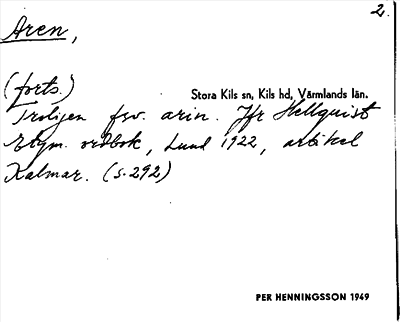 Aren,
2.
(forts.)
Stora Kils sn, Kils hd, Värmlands län.
Troligen fsv. arin. Jfr Hellquist
Etym. ordbok, Lund 1922, artikel
Kalmar. (s. 292)
PER HENNINGSSON 1949